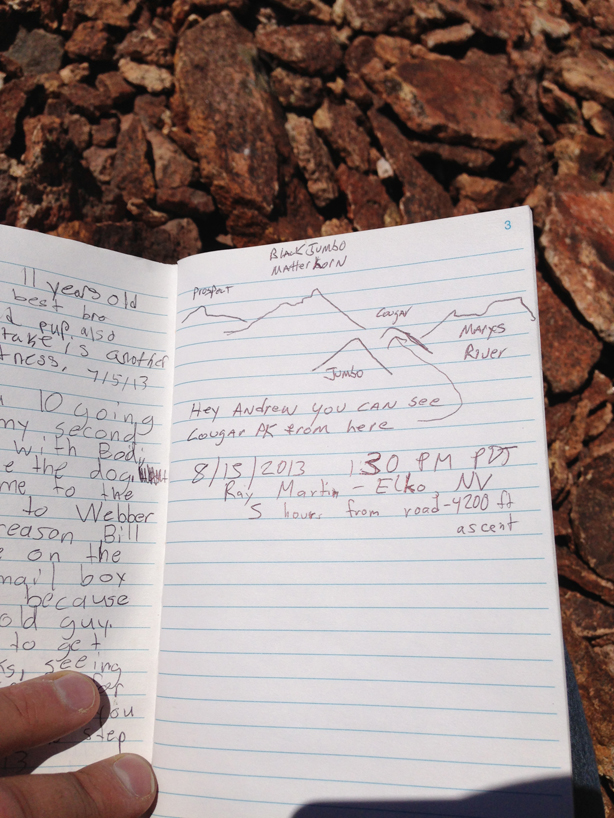 11 years old
best bro
pup also
take is another
tness, 7/5/13
10 going
my second
with Bodi
e the dog
me to the
to Webber
reason Bill
e on the
mail box
because
old guy.
to get
ks, seeing
for
you
step
3
Black Jumbo
Matterhorn
Prospect
Cougar
Marys
River
Jumbo
Hey Andrew you can see
Cougar PK from here
8/15/2013 1:30 PM PDT
Ray Martin - Elko NV
5 hours from road - 4200 ft
ascent